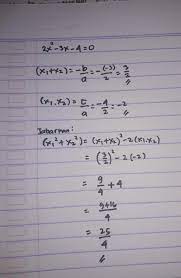 2x² - 3x - 4 = 0
(x₁+x₂) = -b/a = -(-3)/2 = 3/2 //
(x₁.x₂) = c/a = -4/2 = -2 //
Jabarnan:
(x₁² + x₂²) = (x₁+x₂)² - 2(x₁.x₂)
= (3/2)² - 2(-2)
= 9/4 + 4
= 9+16/4
= 25/4 //